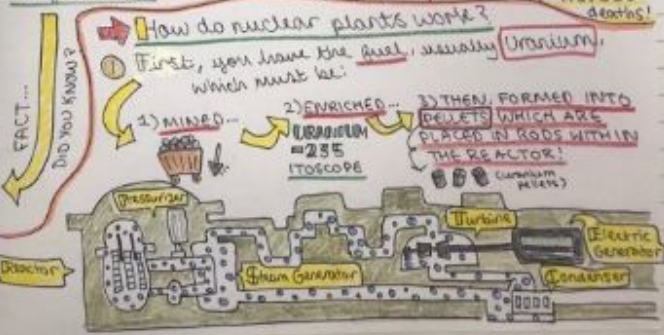 deaths!
FACT...
DID YOU KNOW?
How do nuclear plants work?
1 First, you have the fuel, usually Uranium,
which must be:
1) MINED...
2) ENRICHED...
URANIUM
-235
ITOSCOPE
3) THEN, FORMED INTO
PELLETS WHICH ARE
PLACED IN RODS WITHIN
THE REACTOR!
(uranium
pellets)
Pressurizer
Reactor
Steam Generator
Turbine
Electric
Generator
Condenser